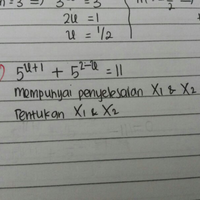 2u = 1
u = 1/2
5^{u+1} + 5^{2-u} = 11
mempunyai penyelesaian X₁ & X₂
Tentukan X₁ & X₂